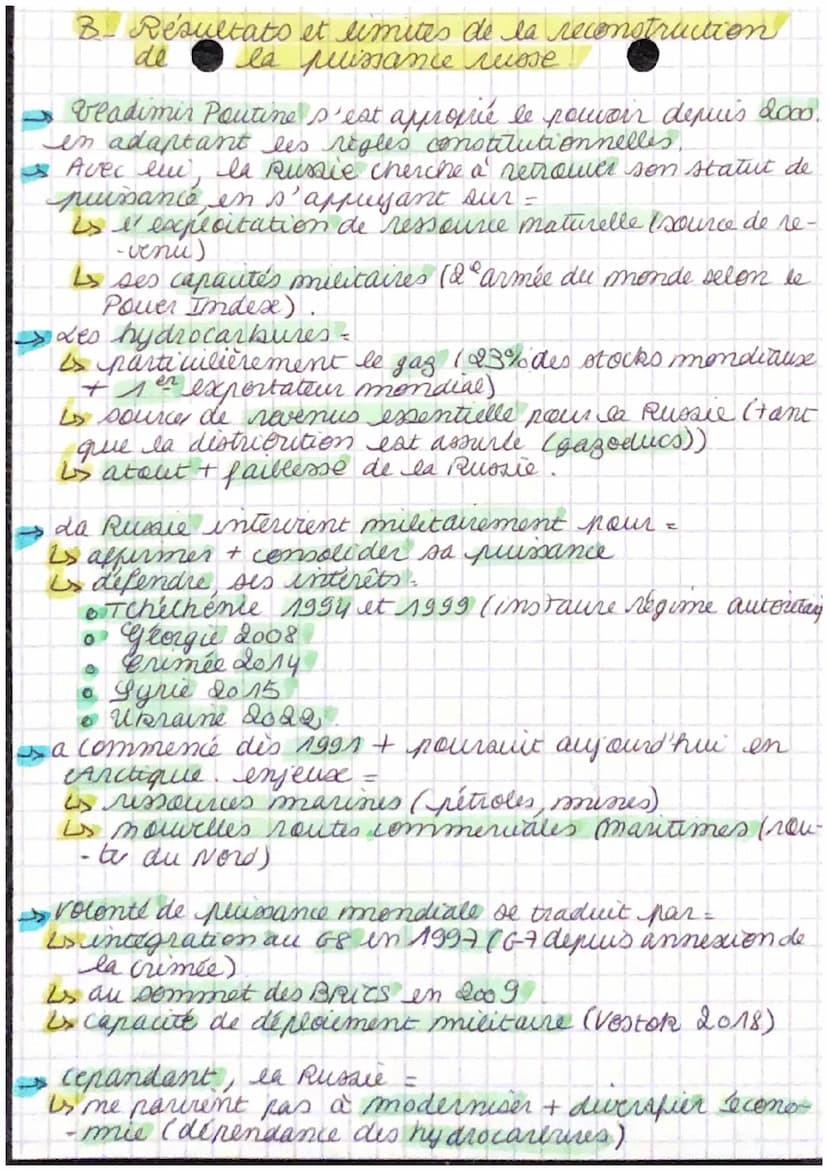 B- Résultats et limites de la reconstruction
de la puissance russe !
→ Vladimir Poutine s'est approprié le pouvoir depuis 2000.
en adaptant les règles constitutionnelles.
→ Avec lui, la Russie cherche à retrouver son statut de
puissance, en s'appuyant sur =
↳ l'exploitation de ressource naturelle (source de re-
-venu)
↳ ses capacités militaires (2e armée du monde selon le
Power Index).
→ Les hydrocarbures =
↳ particulièrement le gaz (23% des stocks mondiaux
+ 1er exportateur mondial)
↳ source de revenus essentielle pour la Russie (tant
que la distribution est assurée (gazoducs))
↳ atout + faiblesse de la Russie.
→ La Russie intervient militairement pour =
↳ affirmer + consolider sa puissance
↳ défendre ses intérêts =
o Tchéchénie 1994 et 1999 (instaure régime autoritai
o Géorgie 2008
o Crimée 2014
o Syrie 2015
o Ukraine 2022.
→ a commencé dès 1991 + poursuit aujourd'hui en
Arctique. enjeux =
↳ ressources marines (pétroles, mines)
↳ nouvelles routes commerciales maritimes (rou-
-te du Nord)
→ volonté de puissance mondiale se traduit par =
↳ intégration au G8 en 1997 (G7 depuis annexion de
la crimée)
↳ au sommet des BRICS en 2009
↳ capacité de déploiement militaire (Vostok 2018)
→ cepandant, la Russie =
↳ ne parvient pas à moderniser + diversifier l'écono-
-mie (dépendance des hydrocarbures)